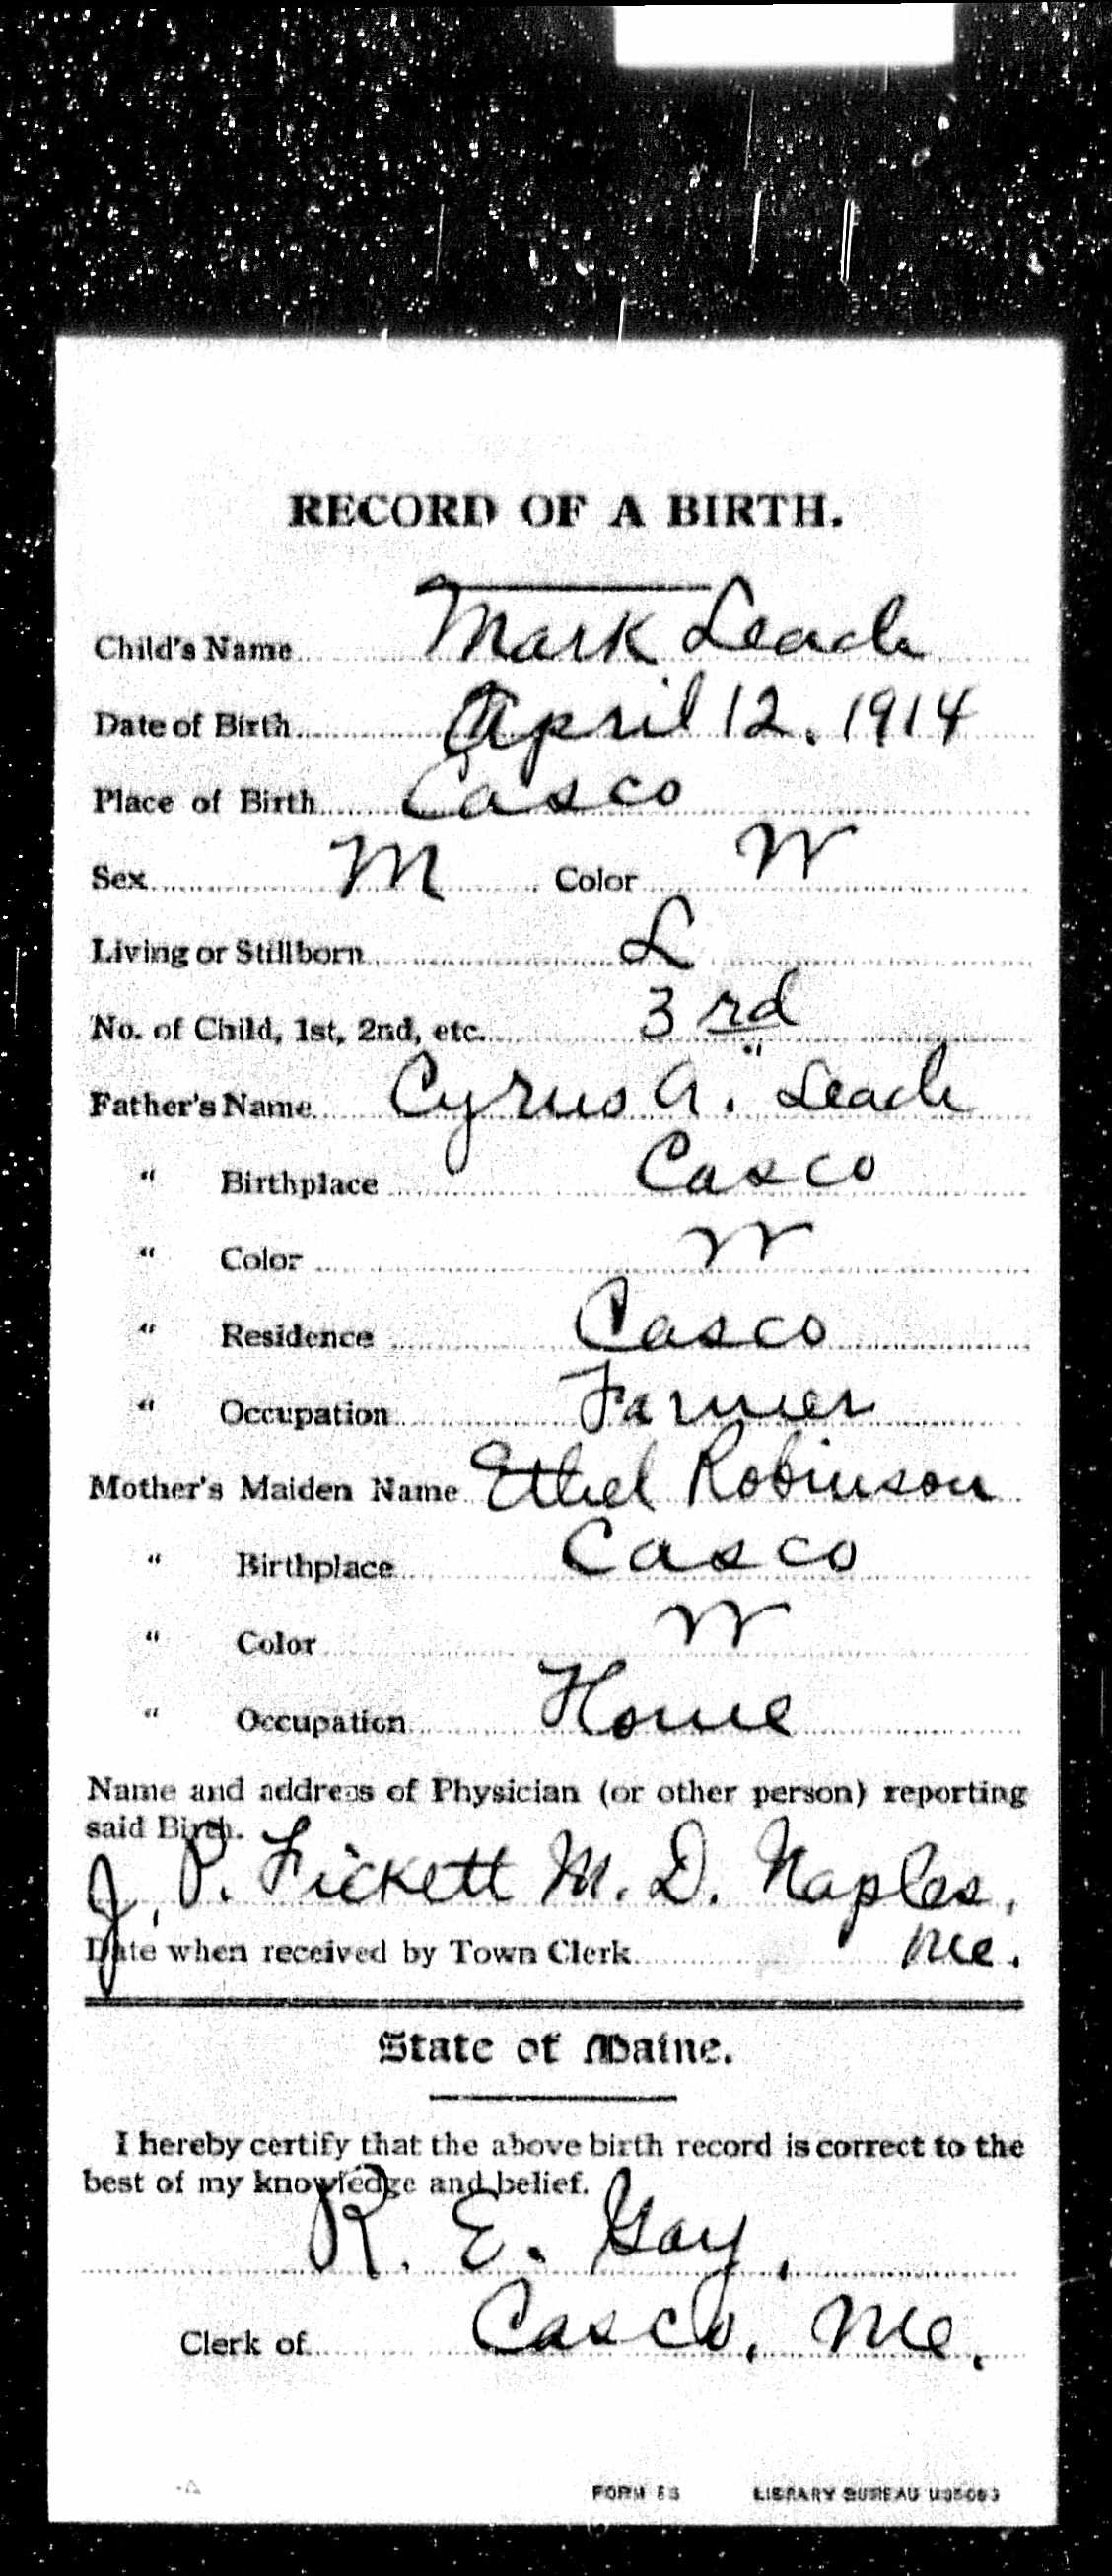 RECORD OF A BIRTH.
Child's Name Mark Leach
Date of Birth April 12, 1914
Place of Birth Casco
Sex M Color W
Living or Stillborn L
No. of Child, 1st, 2nd, etc. 3rd
Father's Name Cyrus A. Leach
" Birthplace Casco
" Color W
" Residence Casco
" Occupation Farmer
Mother's Maiden Name Ethel Robinson
" Birthplace Casco
" Color W
" Occupation Home
Name and address of Physician (or other person) reporting
said Birth.
J. P. Fickett M. D. Naples,
Me.
Date when received by Town Clerk
State of Maine.
I hereby certify that the above birth record is correct to the
best of my knowledge and belief.
R. E. Gay,
Clerk of Casco, Me.
FORM 53 LIBRARY BUREAU